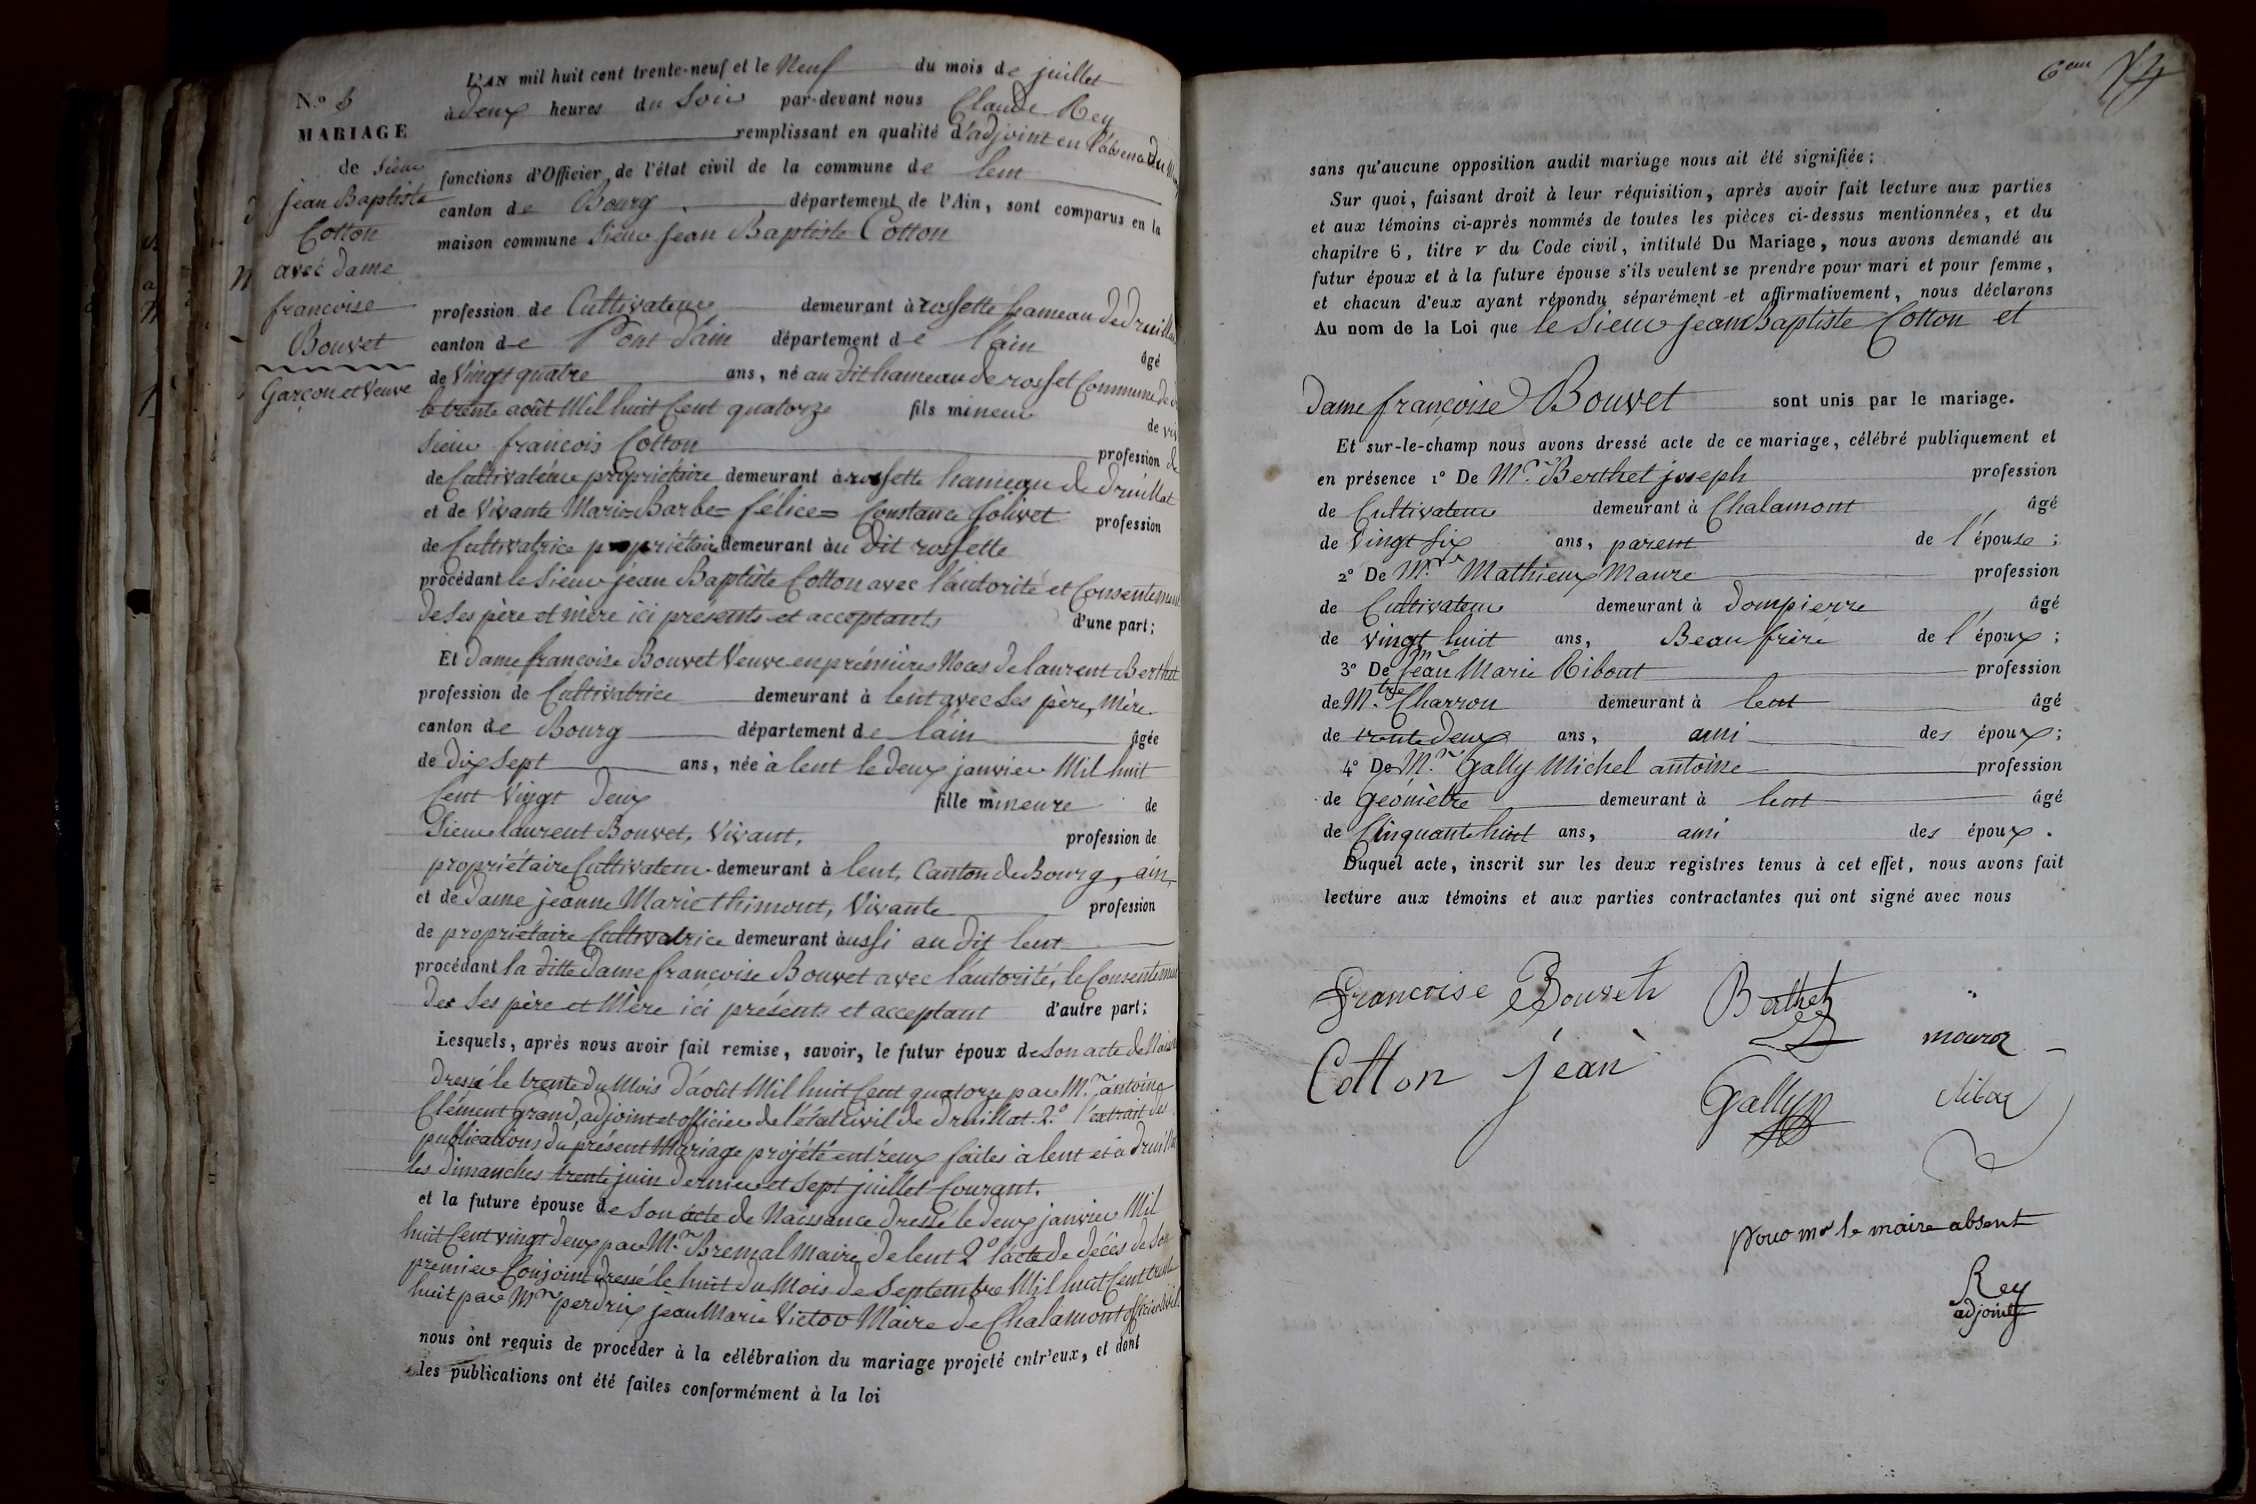 L'AN mil huit cent trente-neuf et le Neuf du mois de juillet
à deux heures du Soir par-devant nous Claude Rey
remplissant en qualité d'adjoint en l'absence du
fonctions d'Officier de l'état civil de la commune de lent
canton de Bourg département de l'Ain, sont comparus en la
maison commune Sieur jean Baptiste Cotton
N.º
MARIAGE
de Sieur
jean Baptiste
Cotton
avec dame
françoise
Bouvet
Garçon et Veuve
profession de Cultivateur demeurant à rossette hameau de druillat
canton de Pont d'ain département de l'ain
âgé
de Vingt quatre ans, né au dit hameau de rosset Commune de
le trente août Mil huit Cent quatorze fils mineur de
Sieur françois Cotton profession de
de Cultivateur propriétaire demeurant à rossette hameau de druillat
et de Vivante Marie Barbe= félice= Constance Jolivet profession
de Cultivatrice propriétaire demeurant au dit rossette
procédant le Sieur jean Baptiste Cotton avec l'autorité et Consentement
de Ses père et mère ici présents et acceptants d'une part;
Et dame françoise Bouvet Veuve en prémières Noces de laurent Berthet
profession de Cultivatrice demeurant à lent avec Ses père, Mère
canton de Bourg département de l'ain âgée
de dix Sept ans, née à lent le deux janvier Mil huit
Cent Vingt deux fille mineure de
Sieur laurent Bouvet, Vivant, profession de
propriétaire Cultivateur demeurant à lent, Canton de Bourg, ain,
et de dame jeanne Marie thimont, Vivante profession
de propriétaire Cultivatrice demeurant aussi au dit lent
procédant la ditte dame françoise Bouvet avec l'autorité, le Consentement
des Ses père et Mère ici présents et acceptant d'autre part;
Lesquels, après nous avoir fait remise, savoir, le futur époux de Son acte de
dressé le trente du Mois d'août Mil huit Cent quatorze par M.r antoine
Clément Grand, adjoint et officier de l'état Civil de druillat. 2.º l'extrait des
publications du présent Mariage projété entr'eux faites à lent et à druillat
les dimanches trente juin dernier et Sept juillet Courant.
et la future épouse de Son acte de Naissance dressé le deux janvier Mil
huit Cent vingt deux par M.r Bremal Maire de lent 2º l'acte de décès de Son
premier Conjoint dressé le huit du Mois de Septembre Mil huit Cent trente
huit par Mr perdrix jean Marie Victor Maire de Chalamont officier Civil
nous ont requis de procéder à la célébration du mariage projeté entr'eux, et dont
les publications ont été faites conformément à la loi
6eme
sans qu'aucune opposition audit mariage nous ait été signifiée;
Sur quoi, faisant droit à leur réquisition, après avoir fait lecture aux parties
et aux témoins ci-après nommés de toutes les pièces ci-dessus mentionnées, et du
chapitre 6, titre v du Code civil, intitulé Du Mariage, nous avons demandé au
futur époux et à la future épouse s'ils veulent se prendre pour mari et pour femme,
et chacun d'eux ayant répondu séparément et affirmativement, nous déclarons
Au nom de la Loi que le Sieur jean Baptiste Cotton et
dame françoise Bouvet sont unis par le mariage.
Et sur-le-champ nous avons dressé acte de ce mariage, célébré publiquement et
en présence 1º De M.r Berthet joseph profession
de Cultivateur demeurant à Chalamont âgé
de Vingt Six ans, parent de l'épouse;
2º De M.r Mathieux Maure profession
de Cultivateur demeurant à dompierre âgé
de vingt huit ans, Beau frère de l'époux;
3º De jean Marie Ribout profession
de M.tre Charron demeurant à lent âgé
de trente deux ans, ami des époux;
4º De M.r Gally Michel antoine profession
de Géomètre demeurant à lent âgé
de Cinquante huit ans, ami des époux.
Duquel acte, inscrit sur les deux registres tenus à cet effet, nous avons fait
lecture aux témoins et aux parties contractantes qui ont signé avec nous
Françoise Bouvet Berthet
Cotton jean
Gally
pour mr le maire absent
Rey
adjoint